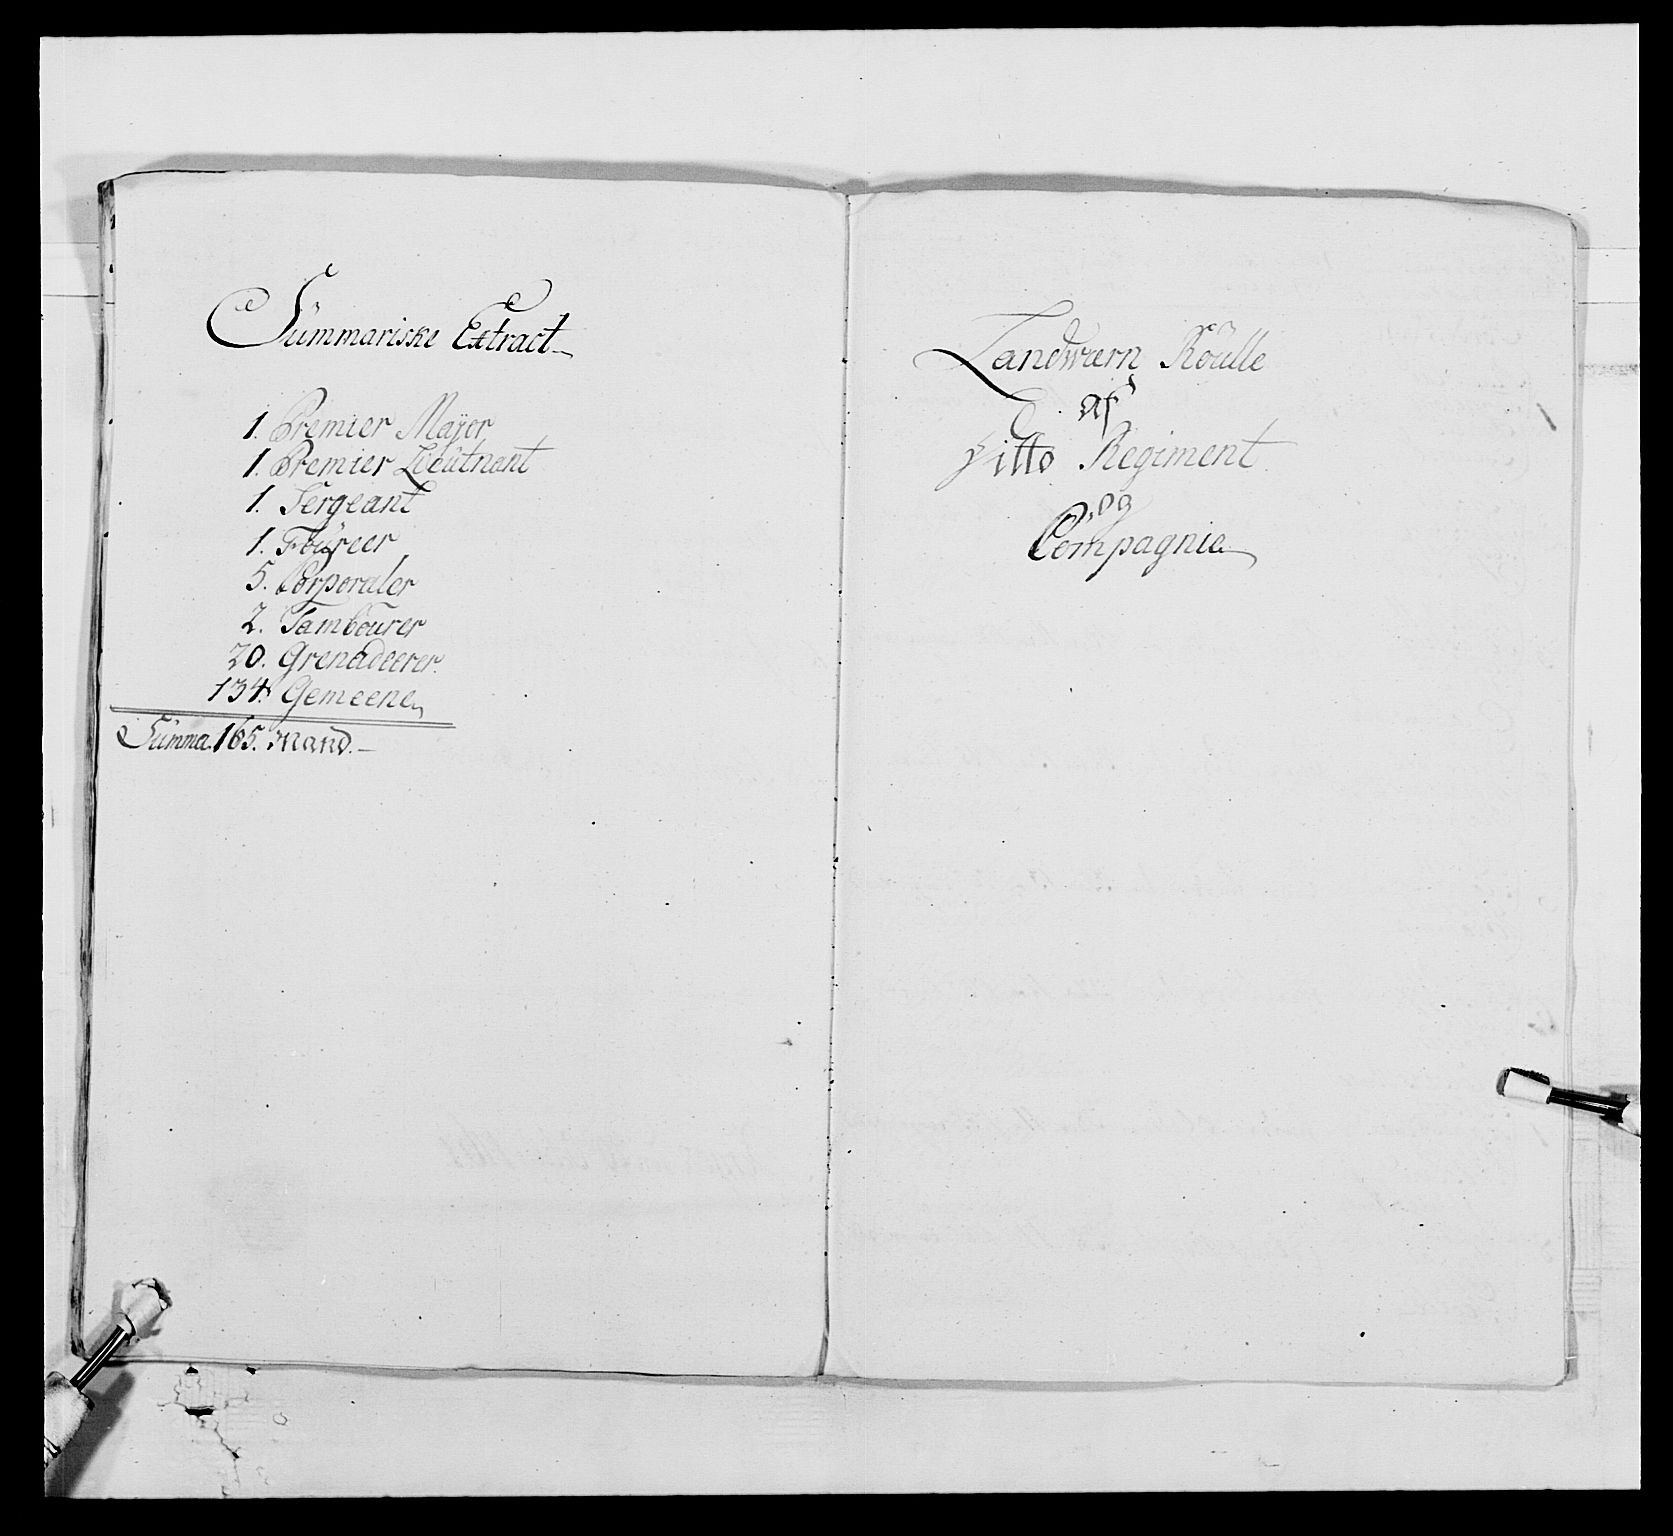 Summariske Extract
1. Premier Major
1. Premier Lieutnant
1. Sergeant
1. Foureer
5. Corporaler
2. Tambourer
20. Grenadeerer
134. Gemeene
Summa. 165. Mand.
Landwærn Roulle
af
Ditto Regiment
og
Compagnie